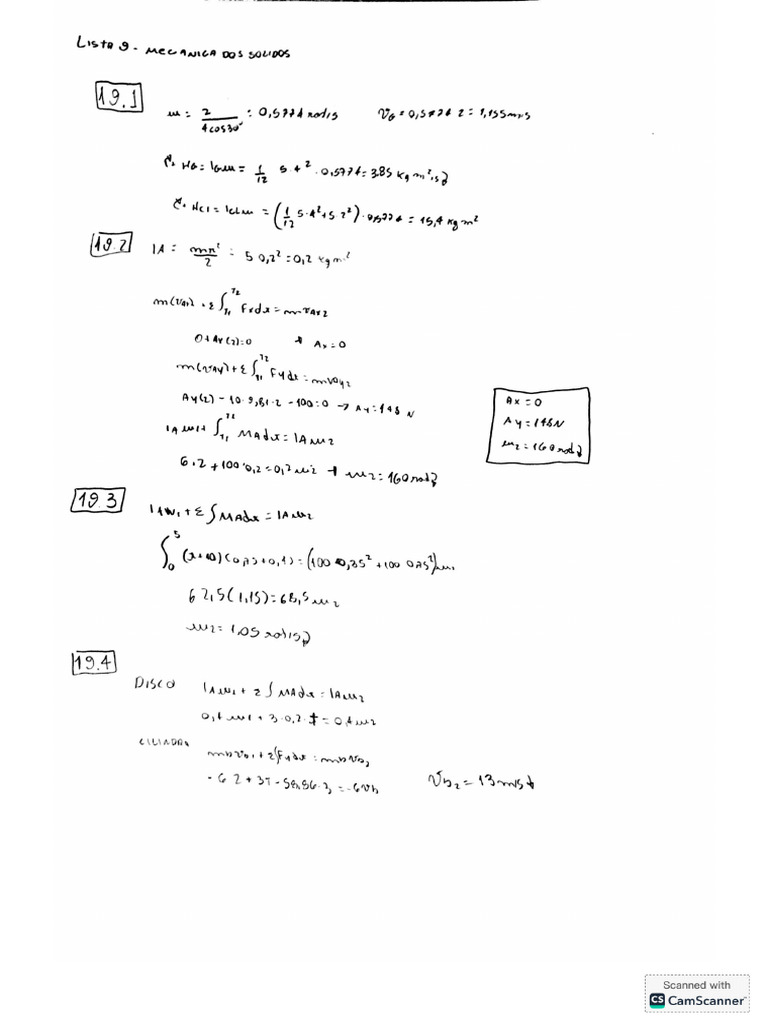 LISTA 9 - MECANICA DOS SOLIDOS
19.1
ω = 2 / 4cos30° = 0,5774 rad/s vG = 0,5774 2 = 1,155 m/s
HG = IGω = 1/12 5·4² · 0,5774 = 3.85 kg m²/s
HCI = ICIω = (1/12 5·4² + 5·2²) · 0,5774 = 15,4 kg m²
19.2
IA = mr²/2 = 5 0,2² = 0,2 kg m²
m(vAx)1 + Σ∫ Fx dx = m vAx2
0 + Ax(2) = 0 → Ax = 0
m(vAy) + Σ∫ Fy dx = m vy2
Ay(2) - 10·9,81·2 - 100 = 0 → Ay = 148 N
IA ω1 + ∫ MA dx = IA ω2
6.2 + 100·0,2 = 0,2 ω2 → ω2 = 160 rad
Ax = 0
Ay = 148 N
ω2 = 160 rad
19.3
IAω1 + Σ∫ MA dx = IA ω2
∫₀⁵ (x+10)(0,75+0,1) = (100 0,35² + 100 0,75²)ω
62,5(1,15) = 68,5 ω2
ω2 = 1,05 rad/s
19.4
DISCO IA ω1 + Σ∫ MA dx = IA ω2
0,4 ω1 + 3·0,2·T = 0,4 ω2
CILINDRO
mb vb1 + Σ∫ Fy dx = mb vb2
-6 2 + 3T - 58,86·3 = -6vb vb2 = 13 m/s
Scanned with
CS CamScanner